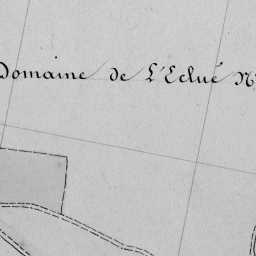 Domaine de L'Eclué N